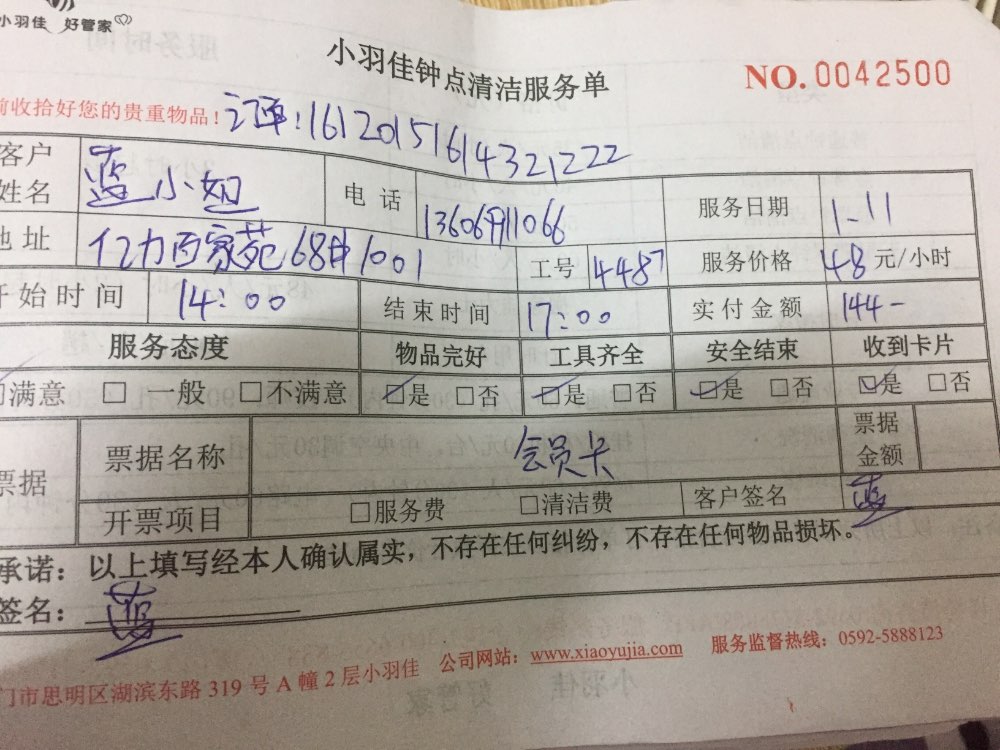 小羽佳 好管家
小羽佳钟点清洁服务单
NO.0042500
前收拾好您的贵重物品！订单：16120151614321222
客户姓名 蓝小姐 电话 13606911066 服务日期 1-11
地址 亿力百家苑68#1001 工号 4487 服务价格 48元/小时
开始时间 14:00 结束时间 17:00 实付金额 144-
服务态度 物品完好 工具齐全 安全结束 收到卡片
☑满意 □一般 □不满意 ☑是 □否 ☑是 □否 ☑是 □否 ☑是 □否
票据 票据名称 会员卡 票据金额
开票项目 □服务费 □清洁费 客户签名 蓝
承诺：以上填写经本人确认属实，不存在任何纠纷，不存在任何物品损坏。
签名：蓝
门市思明区湖滨东路319号A幢2层小羽佳 公司网站：www.xiaoyujia.com 服务监督热线：0592-5888123